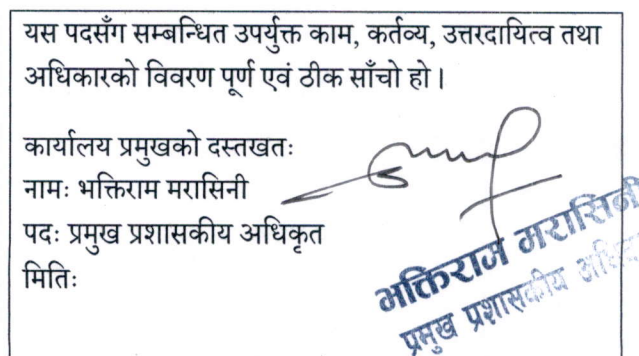 यस पदसँग सम्बन्धित उपर्युक्त काम, कर्तव्य, उत्तरदायित्व तथा
अधिकारको विवरण पूर्ण एवं ठीक साँचो हो ।
कार्यालय प्रमुखको दस्तखतः
नामः भक्तिराम मरासिनी
पदः प्रमुख प्रशासकीय अधिकृत
मितिः
भक्तिराम मरासिनी
प्रमुख प्रशासकीय